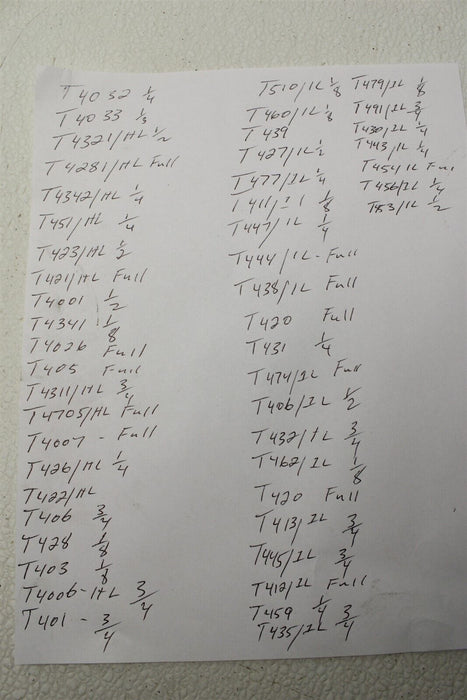 T4032 1/4
T4033 1/8
T4321/HL 1/2
T4281/HL Full
T4342/HL 1/4
T451/HL 1/4
T423/HL 1/2
T421/HL Full
T4001 1/2
T4341 1/8
T4026 Full
T405 Full
T4311/HL 3/4
T4705/HL Full
T4007 - Full
T426/HL 1/4
T422/HL
T406 3/4
T428 1/8
T403 1/8
T4006-HL 3/4
T401 - 3/4
T510/IL 1/8
T460/IL 1/8
T439
T427/IL 1/2
T477/IL 1/4
T411/II 1/8
T447/IL 1/4
T444/IL - Full
T438/IL Full
T420 Full
T431 1/4
T474/IL Full
T406/IL 1/2
T432/HL 3/4
T462/IL 1/8
T420 Full
T413/IL 3/4
T445/IL 3/4
T412/IL Full
T459 1/4
T435/IL 3/4
T479/IL 1/8
T491/IL 3/4
T430/IL 1/4
T443/IL 1/4
T454 IL Full
T456/IL 1/4
T453/IL 1/2